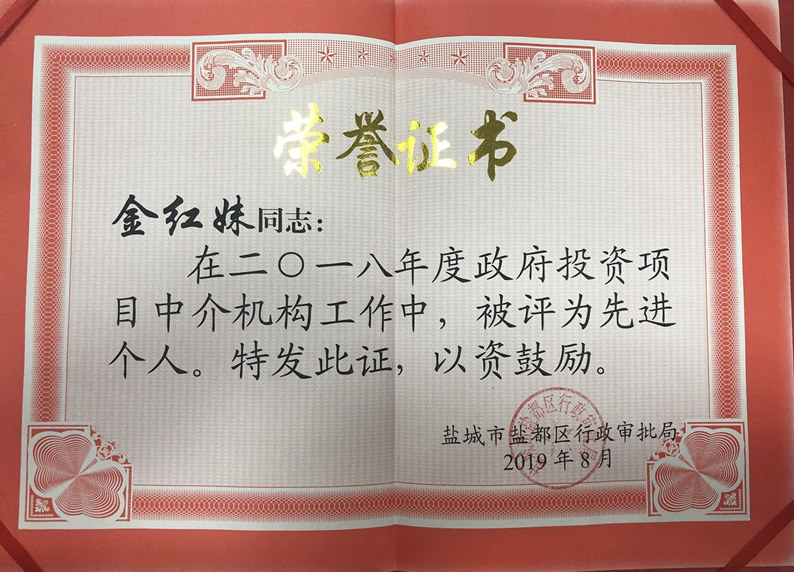 荣誉证书
金红妹同志：
在二〇一八年度政府投资项
目中介机构工作中，被评为先进
个人。特发此证，以资鼓励。
盐城市盐都区行政审批局
2019年8月